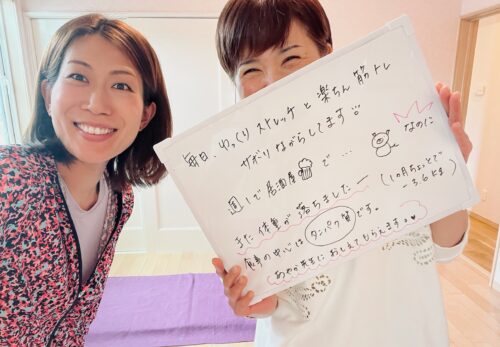 毎日、ゆっくりストレッチと楽ちん筋トレ
サボりながらしてます
週1で居酒屋で…
なのに
また体重が落ちましたー
(1ヶ月ちょっとで
-3.6kg)
食事の中心はタンパク質です。
あやか先生におしえてもらえますよ♥